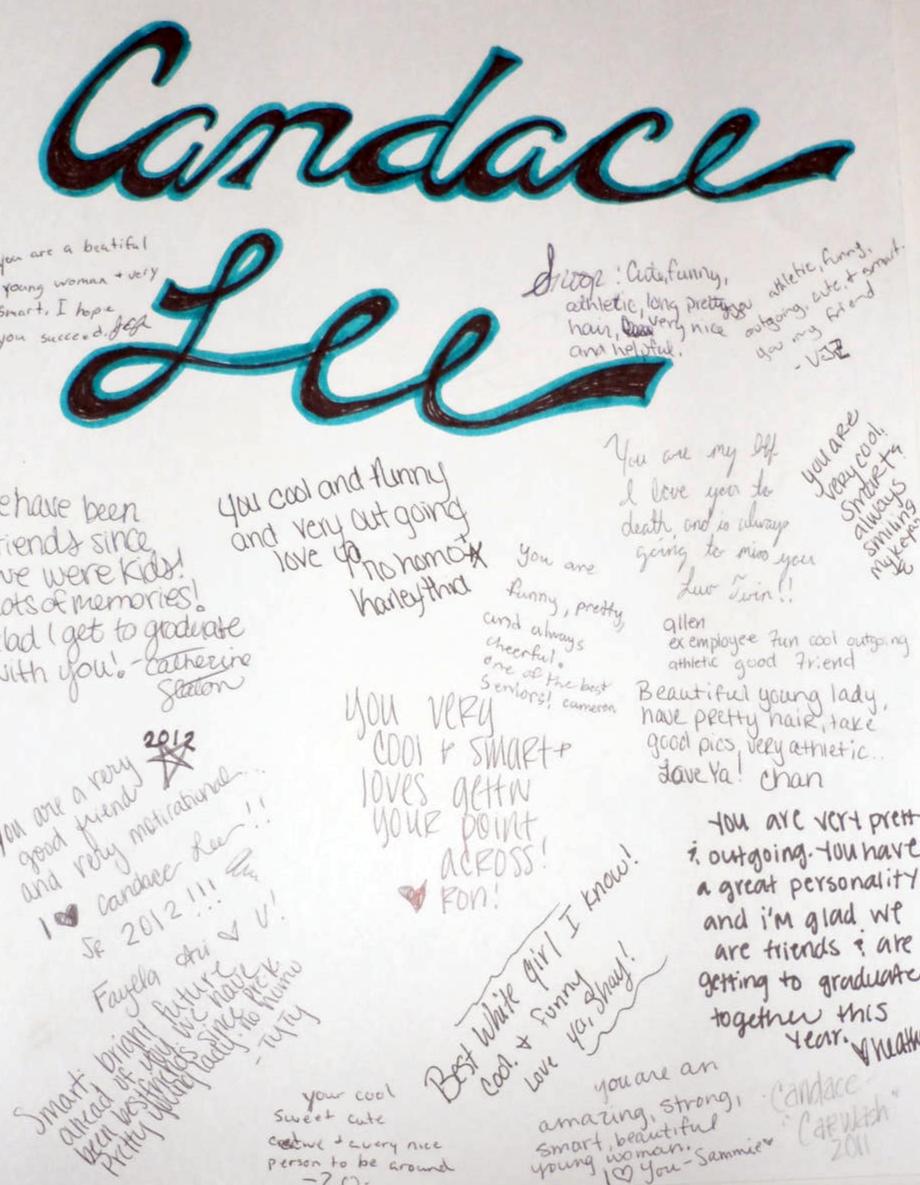 Candace
Lee
you are a beatiful
young woman + very
smart, I hope
you succeed.
Swoop: Cute, funny,
athletic, long pretty
hair, very nice
and helpful.
athletic, funny,
outgoing, cute, + smart.
you my friend
you are
very cool,
smart &
always
smiling
You are my bff
I love you to
death, and is always
going to miss you
Luv Twin!!
you cool and funny
and very out going
love ya no homo
Karleythia
e have been
riends since
we were kids!
ots of memories!
lad I get to graduate
with you! - Catherine
Slaton
you are
funny, pretty,
and always
cheerful.
one of the best
seniors! cameron
allen
ex employee fun cool outgoing
athletic good friend
Beautiful young lady,
have pretty hair, take
good pics, very athletic..
Love Ya! Chan
You very
cool + smart +
loves gettn
your point
across!
♥ Ron!
2012
you are a very
good friend
and very motivational...
I ♥ Candace Lee!!
SR 2012!!!
Fayella Ari ♥ U!
Smart, bright future
ahead of you we have
been bestfriends since prek.
Pretty young lady. no homo
- TyTy
Best White girl I know!
Cool & funny
love ya, Shay!
You are very prett
& outgoing. You have
a great personality
and i'm glad we
are friends & are
getting to graduate
together this
year. ♥heath
your cool
sweet cute
+ a very nice
person to be around
you are an
amazing, strong,
smart, beautiful
young woman.
I ♡ You - Sammie
Candace
Carwash
2011